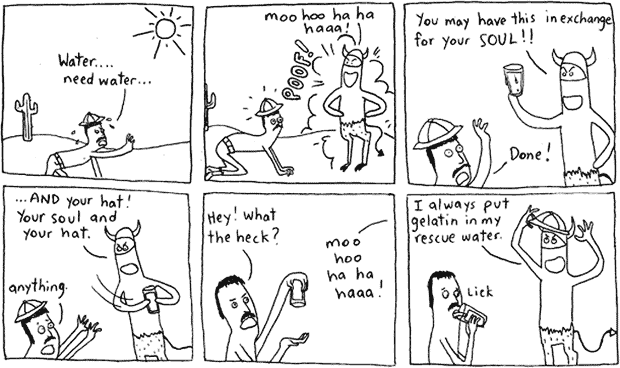 Water....
need water...
POOF!
moo hoo ha ha
haaa!
You may have this in exchange
for your SOUL!!
Done!
...AND your hat!
Your soul and
your hat.
anything.
Hey! What
the heck?
moo
hoo
ha ha
haaa!
I always put
gelatin in my
rescue water.
Lick